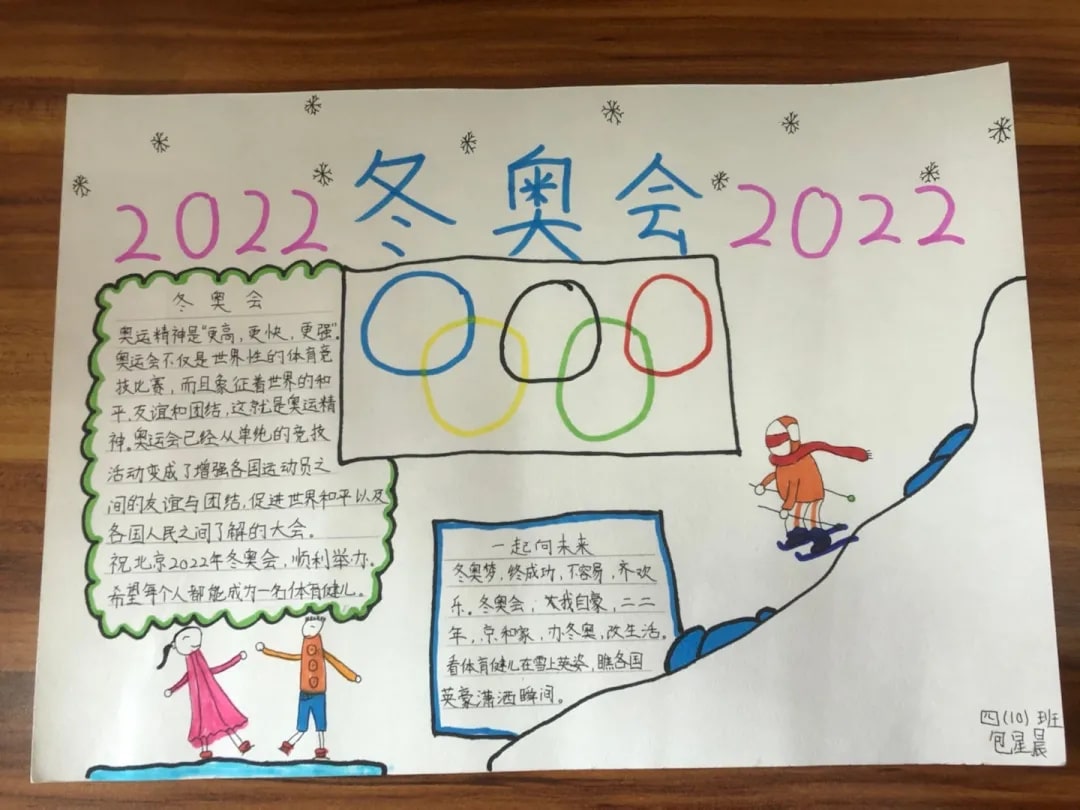 2022 冬奥会 2022
冬奥会
奥运精神是“更高，更快，更强”。
奥运会不仅是世界性的体育竞
技比赛，而且象征着世界的和
平、友谊和团结，这就是奥运精
神。奥运会已经从单纯的竞技
活动变成了增强各国运动员之
间的友谊与团结，促进世界和平以及
各国人民之间了解的大会。
祝北京2022年冬奥会，顺利举办。
希望每个人都能成为一名体育健儿。
一起向未来
冬奥梦，终成功，不容易，齐欢
乐。冬奥会，我自豪，二二
年，京和家，办冬奥，改生活。
看体育健儿在雪上英姿，瞧各国
英豪潇洒瞬间。
四(10)班
包星晨